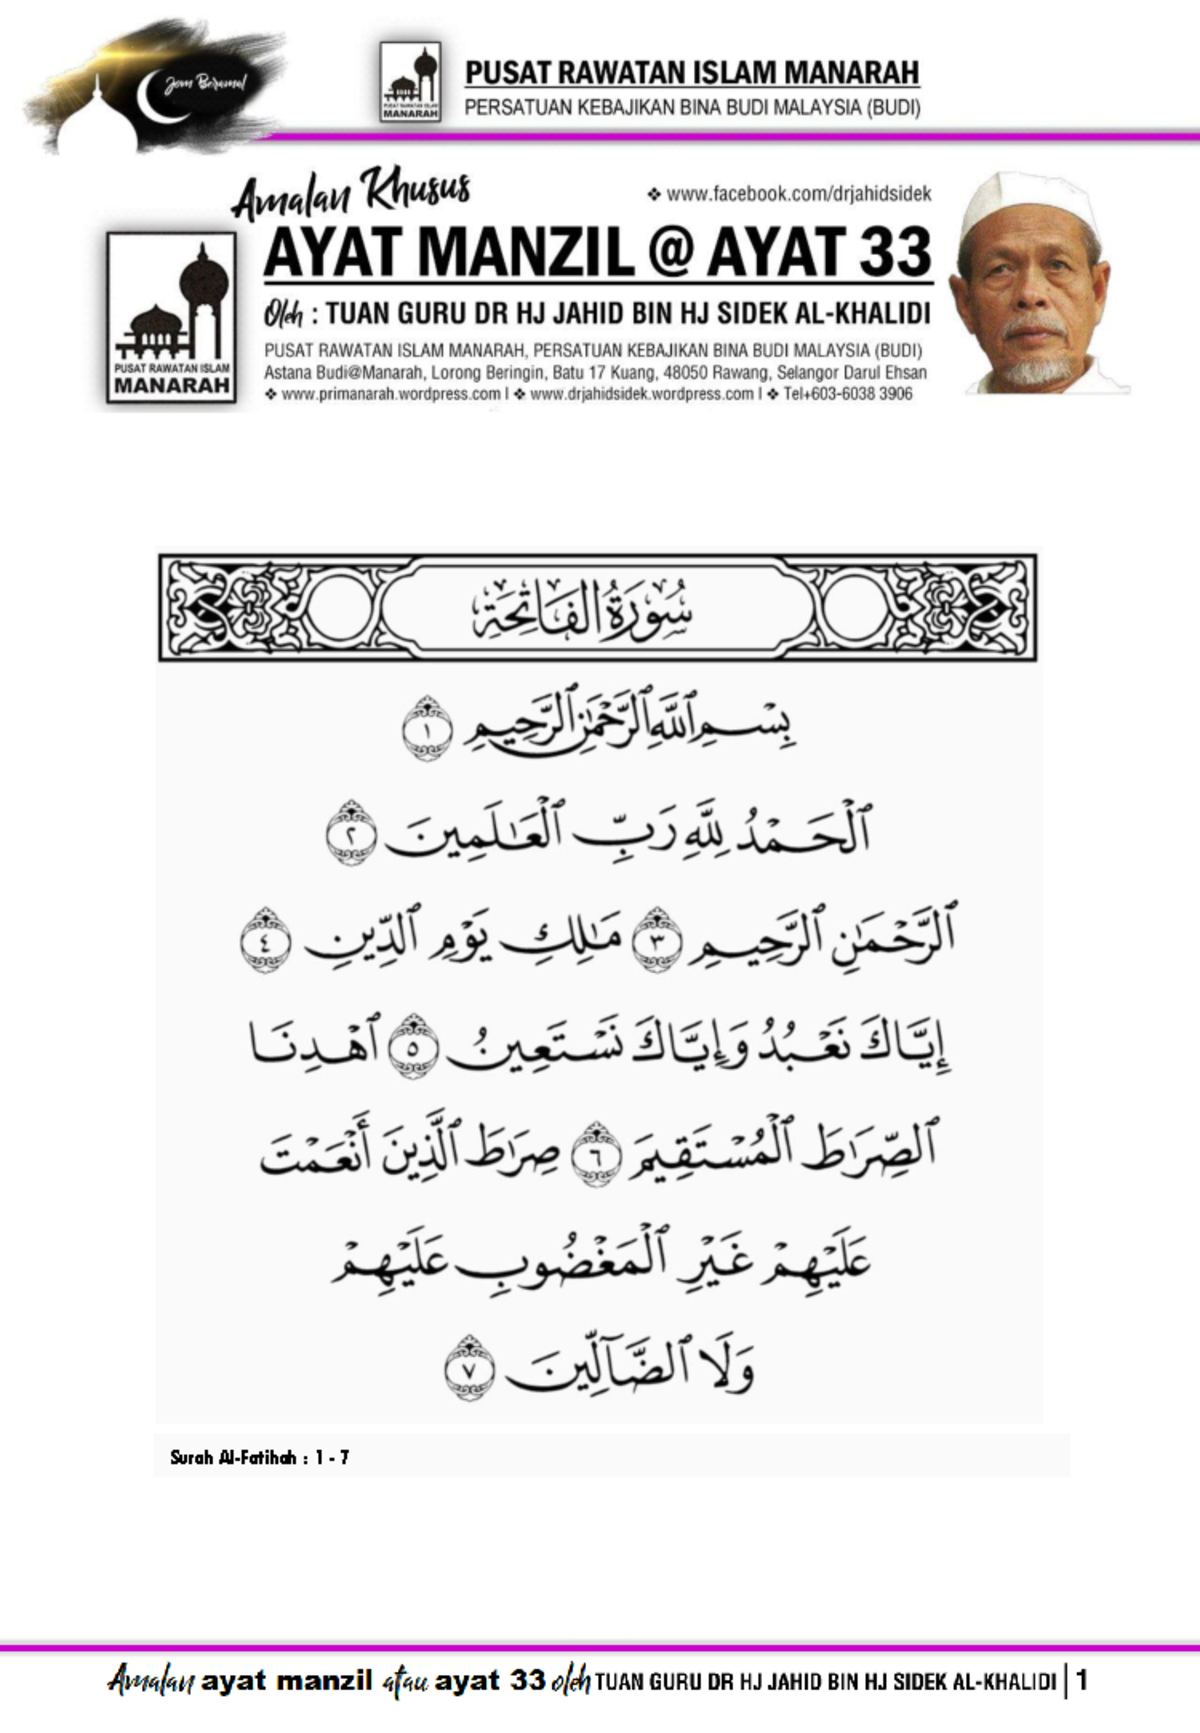 Jom Beramal
PUSAT RAWATAN ISLAM
MANARAH
PUSAT RAWATAN ISLAM MANARAH
PERSATUAN KEBAJIKAN BINA BUDI MALAYSIA (BUDI)
Amalan Khusus
❖ www.facebook.com/drjahidsidek
AYAT MANZIL @ AYAT 33
Oleh : TUAN GURU DR HJ JAHID BIN HJ SIDEK AL-KHALIDI
PUSAT RAWATAN ISLAM MANARAH, PERSATUAN KEBAJIKAN BINA BUDI MALAYSIA (BUDI)
Astana Budi@Manarah, Lorong Beringin, Batu 17 Kuang, 48050 Rawang, Selangor Darul Ehsan
❖ www.primanarah.wordpress.com I ❖ www.drjahidsidek.wordpress.com I ❖ Tel+603-6038 3906
PUSAT RAWATAN ISLAM
MANARAH
سُورَةُ الفَاتِحَةِ
بِسْمِ ٱللَّهِ ٱلرَّحْمَٰنِ ٱلرَّحِيمِ ١
ٱلْحَمْدُ لِلَّهِ رَبِّ ٱلْعَٰلَمِينَ ٢
ٱلرَّحْمَٰنِ ٱلرَّحِيمِ ٣ مَٰلِكِ يَوْمِ ٱلدِّينِ ٤
إِيَّاكَ نَعْبُدُ وَإِيَّاكَ نَسْتَعِينُ ٥ ٱهْدِنَا
ٱلصِّرَٰطَ ٱلْمُسْتَقِيمَ ٦ صِرَٰطَ ٱلَّذِينَ أَنْعَمْتَ
عَلَيْهِمْ غَيْرِ ٱلْمَغْضُوبِ عَلَيْهِمْ
وَلَا ٱلضَّآلِّينَ ٧
Surah Al-Fatihah : 1 - 7
Amalan ayat manzil atau ayat 33 oleh TUAN GURU DR HJ JAHID BIN HJ SIDEK AL-KHALIDI | 1